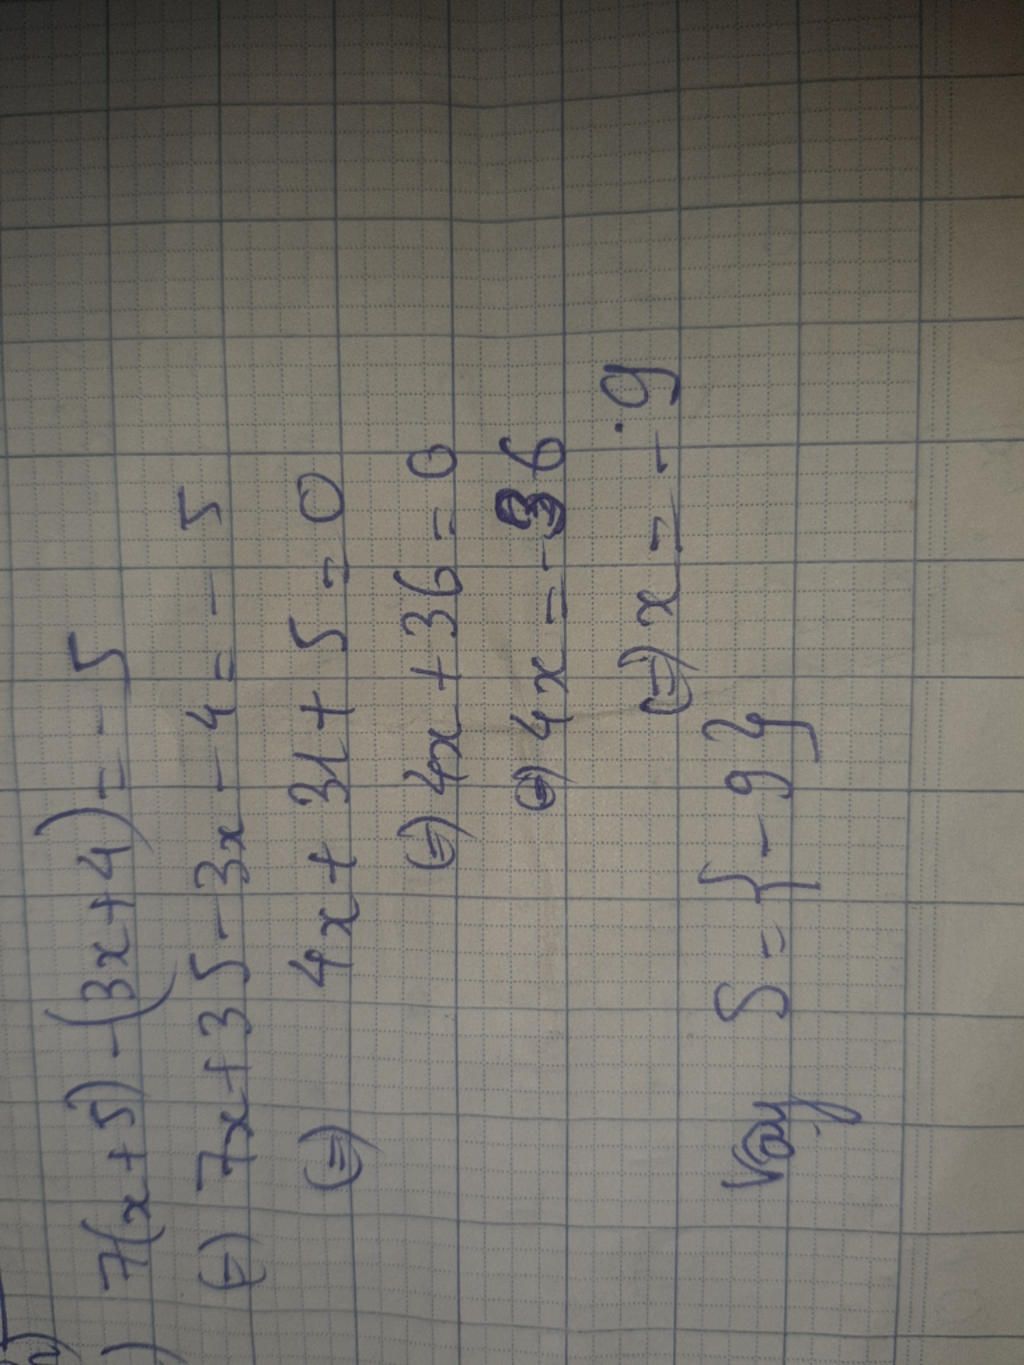 7(x+5) - (3x+4) = - 5
(=) 7x + 35 - 3x - 4 = - 5
(=) 4x + 31 + 5 = 0
(=) 4x + 36 = 0
(=) 4x = -36
(=) x = - 9
Vậy S = { - 9 }